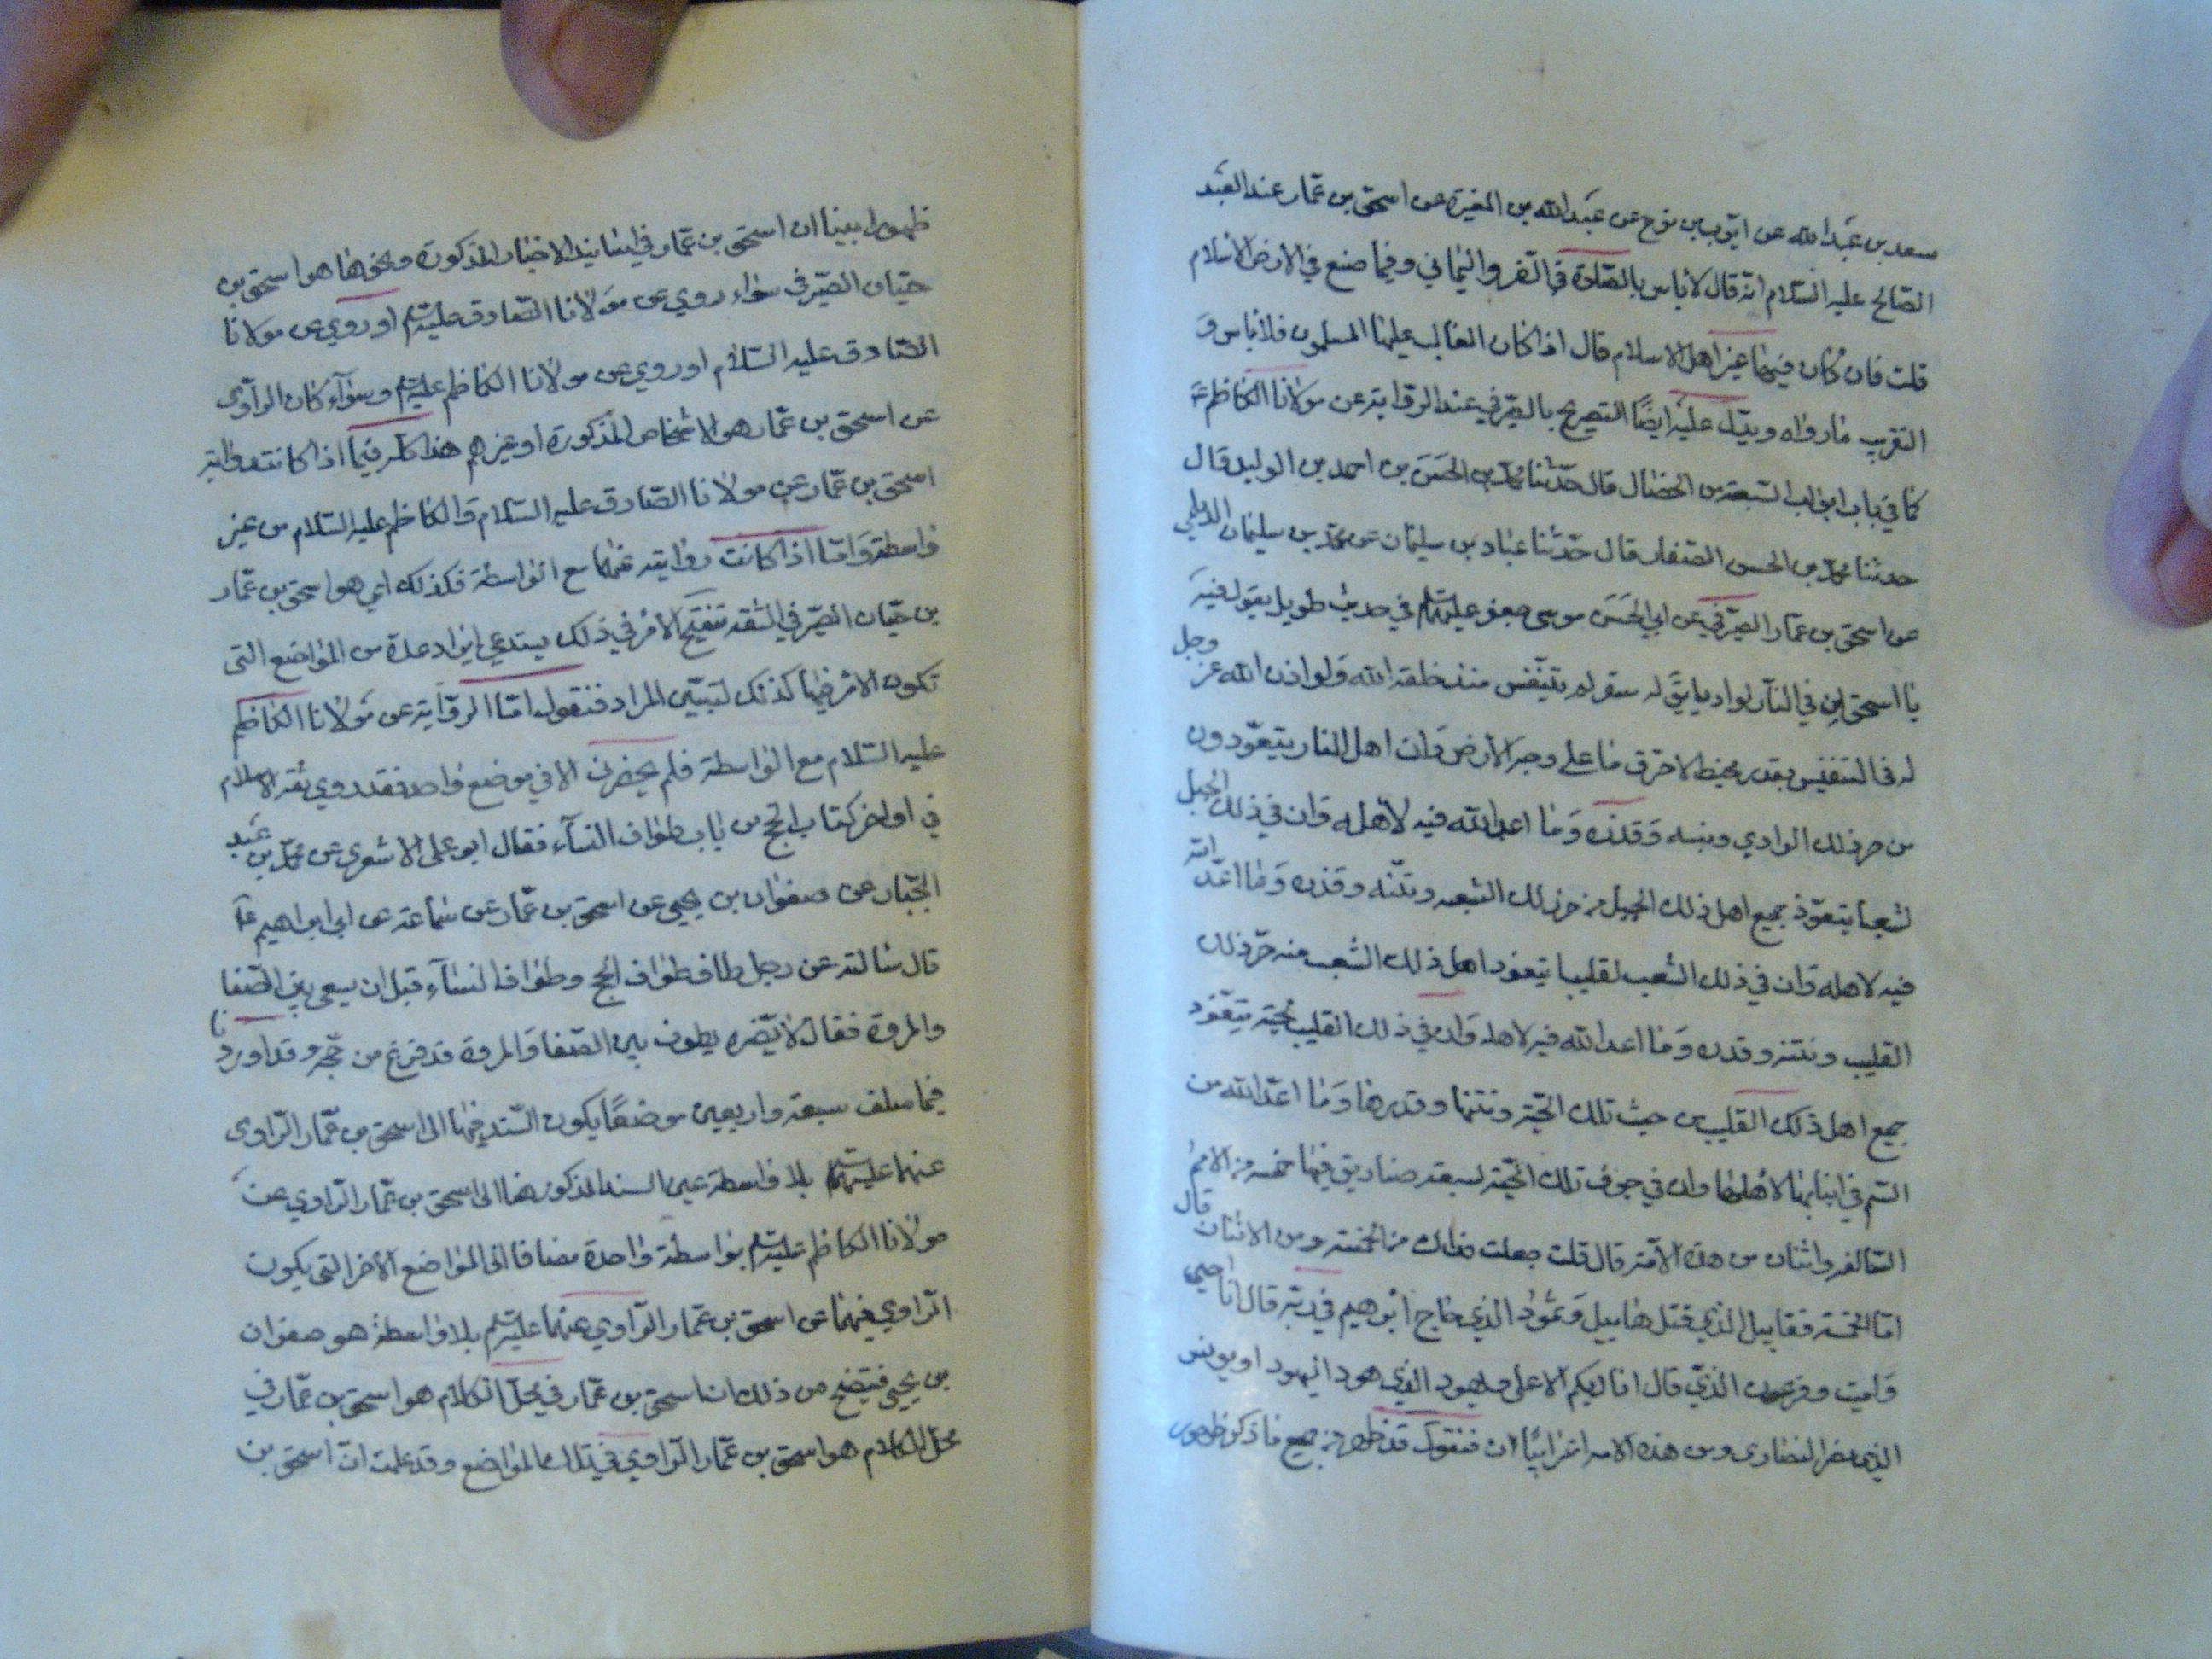 سعد بن عبد الله عن ايوب بن نوح عن عبد الله بن المغيرة عن اسحق بن عمار عند العبد
الصالح عليه السلام انه قال لا باس بالصلوة في الفرو اليماني وفيما صنع في الارض الاسلام
قلت فان كان فيها غير اهل الاسلام قال اذا كان الغالب عليها المسلمون فلا باس و
التقريب ما رواه ويدل عليه ايضا التصريح بالصيرفي عند الرواية عن مولانا الكاظم ع
كما في باب ابواب السبعة من الخصال قال حدثنا محمد بن الحسن بن احمد بن الوليد قال
حدثنا محمد بن الحسن الصفار قال حدثنا عباد بن سليمان عن محمد بن سليمان الديلمي
عن اسحق بن عمار الصيرفي عن ابي الحسن موسى جعفر عليه السلام في حديث طويل يقول فيه
يا اسحق ان في النار لواديا يقال له سقر لم يتنفس منذ خلقه الله ولو اذن الله عز وجل
له في التنفيس بقدر مخيط لاحترق ما على وجه الارض وان اهل النار يتعوذون
من حر ذلك الوادي ونتنه وقذره وما اعد الله فيه لاهله وان في ذلك الجبل
لشعبا يتعوذ جميع اهل ذلك الجبل من حر ذلك الشعب ونتنه وقذره وما اعد الله
فيه لاهله وان في ذلك الشعب لقليبا يتعوذ اهل ذلك الشعب منه حر ذلك
القليب ونتنه وقذره وما اعد الله فيه لاهله وان في ذلك القليب لحية يتعوذ
جميع اهل ذلك القليب من حيث تلك الحية ونتنها وقذرها وما اعد الله من
السم في انيابها لاهلها وان في جوف تلك الحية لسبعة صناديق فيها خمسة من الامم
السالفة واثنان من هذه الامة قال قلت جعلت فداك من الخمسة ومن الاثنان قال
اما الخمسة فقابيل الذي قتل هابيل ونمرود الذي حاج ابرهيم في ربه قال انا احيي
واميت وفرعون الذي قال انا ربكم الاعلى ويهود الذي هود اليهود وبولس
الذي نصر النصارى ومن هذه الامة اعرابيان فنقول قد ظهر من جميع ما ذكر ظهور
ظهورا بينا ان اسحق بن عمار في اسانيد الاخبار المذكورة ونحوها هو اسحق بن
حيان الصيرفي سواء روي عن مولانا الصادق عليه السلام او روي عن مولانا
الصادق عليه السلام او روي عن مولانا الكاظم عليه السلام وسواء كان الراوي
عن اسحق بن عمار هو الاشخاص المذكورة او غيرهم هذا كله فيما اذا كانت رواية
اسحق بن عمار عن مولانا الصادق عليه السلام والكاظم عليه السلام من غير
واسطة واما اذا كانت روايته عنهما مع الواسطة فكذلك اي هو اسحق بن عمار
بن حيان الصيرفي الثقة تنقيح الامر في ذلك يستدعي ايراد عدة من المواضع التي
تكون الامر فيها كذلك لتبين المراد فنقول اما الرواية عن مولانا الكاظم
عليه السلام مع الواسطة فلم يحضرني الا في موضع واحد فقد روي ثقة الاسلام
في اواخر كتاب الحج من باب طواف النساء فقال ابو علي الاشعري عن محمد بن عبد
الجبار عن صفوان بن يحيى عن اسحق بن عمار عن سماعة عن ابي ابراهيم ع
قال سالته عن رجل طاف طواف الحج وطواف النساء قبل ان يسعى بين الصفا
والمروة فقال لا يضره يطوف بين الصفا والمروة قد فرغ من حجه وقد اوردنا
فيما سلف سبعة واربعين موضعا يكون السند فيها الى اسحق بن عمار الراوي
عنهما عليهما السلام بلا واسطة عين السند المذكور هنا الى اسحق بن عمار الراوي عن
مولانا الكاظم عليه السلام بواسطة واحدة مضافا الى المواضع الاخر التي يكون
الراوي فيها عن اسحق بن عمار الراوي عنهما عليهما السلام بلا واسطة هو صفوان
بن يحيى فيتضح من ذلك ان اسحق بن عمار في محل الكلام هو اسحق بن عمار في
محل الكلام هو اسحق بن عمار الراوي في تلك المواضع وقد علمت ان اسحق بن